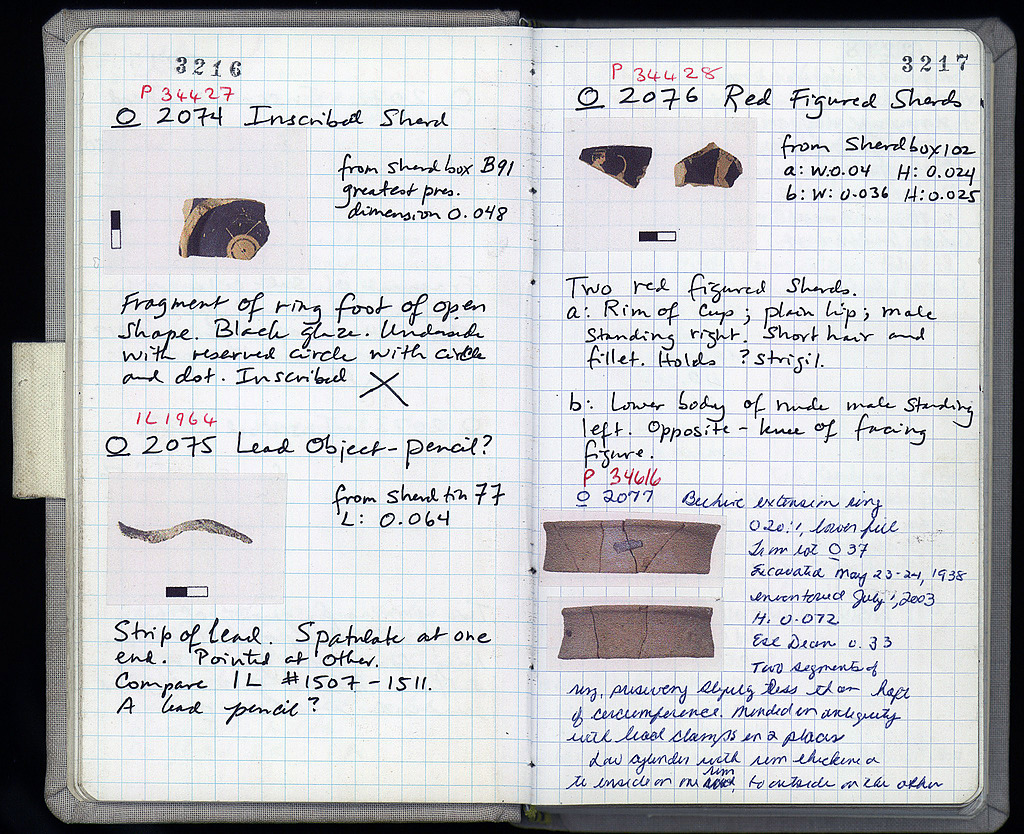 3216
P 34427
O 2074 Inscribed Sherd
from sherdbox B91
greatest pres.
dimension 0.048
Fragment of ring foot of open
shape. Black glaze. Underside
with reserved circle with circle
and dot. Inscribed X
IL 1964
O 2075 Lead Object-pencil?
from sherd tin 77
L: 0.064
Strip of lead. Spatulate at one
end. Pointed at other.
Compare IL #1507-1511.
A lead pencil?
3217
P 34428
O 2076 Red Figured Sherds
from Sherdbox 102
a: W: 0.04 H: 0.024
b: W: 0.036 H: 0.025
Two red figured sherds.
a: Rim of cup; plain lip; male
standing right. Short hair and
fillet. Holds ?strigil.
b: Lower body of nude male standing
left. Opposite - knee of facing
figure.
P 34616
O 2077 Beehive extension ring
O 20:1, lower fill
From lot O 37
Excavated May 23-24, 1938
inventoried July 1, 2003
H. 0.072
Est Diam 0.33
Two segments of
ring, preserving slightly less than half
of circumference. Mended in antiquity
with lead clamps in 2 places
Low cylinder with rim thickened
to inside on one rim, to outside on the other